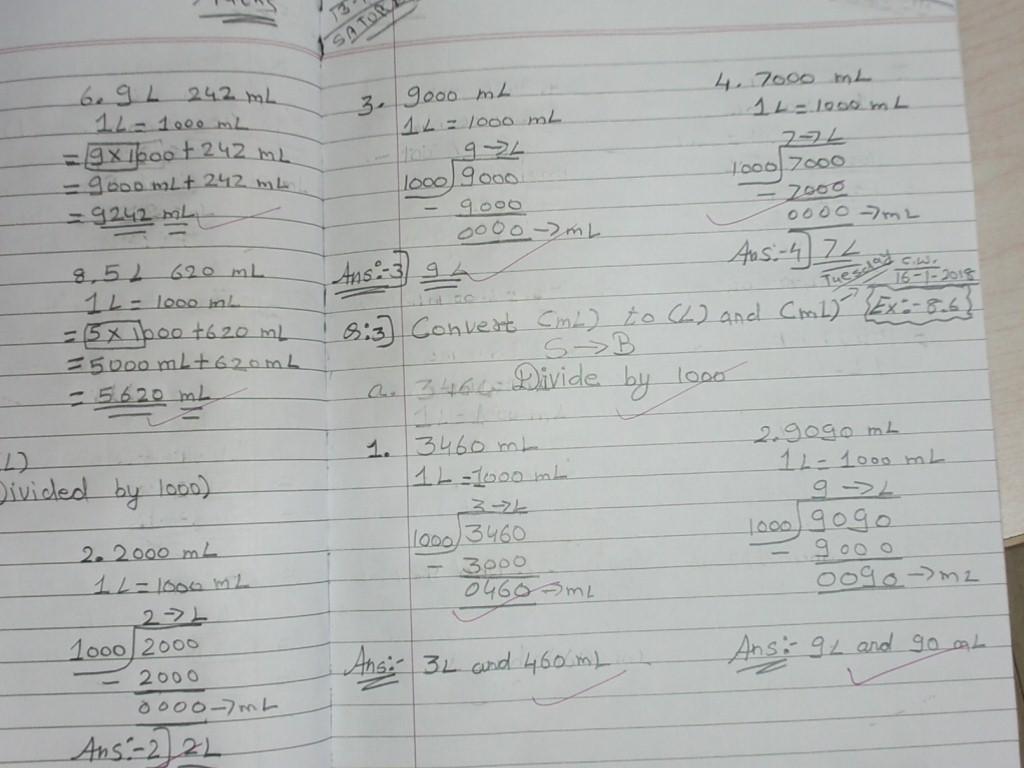 6. 9 L 242 mL
1L = 1000 mL
= 9 x 1000 + 242 mL
= 9000 mL + 242 mL
= 9242 mL
8. 5 L 620 mL
1L = 1000 mL
= 5 x 1000 + 620 mL
= 5000 mL + 620 mL
= 5620 mL
L)
Divided by 1000)
2. 2000 mL
1L = 1000 mL
2 → L
1000 2000
- 2000
0000 → mL
Ans:-2] 2L
3. 9000 mL
1L = 1000 mL
9 → L
1000 9000
- 9000
0000 → mL
Ans:-3] 9 L
4. 7000 mL
1L = 1000 mL
7 → L
1000 7000
- 7000
0000 → mL
Ans:-4] 7L
Tuesday C.W.
16-1-2018
Q:3] Convert (mL) to (L) and (mL) {Ex:-8.6}
S → B
a. 3460 Divide by 1000
1. 3460 mL
1L = 1000 mL
3 → L
1000 3460
- 3000
0460 → mL
Ans:- 3L and 460 mL
2. 9090 mL
1L = 1000 mL
9 → L
1000 9090
- 9000
0090 → mL
Ans:- 9L and 90 mL